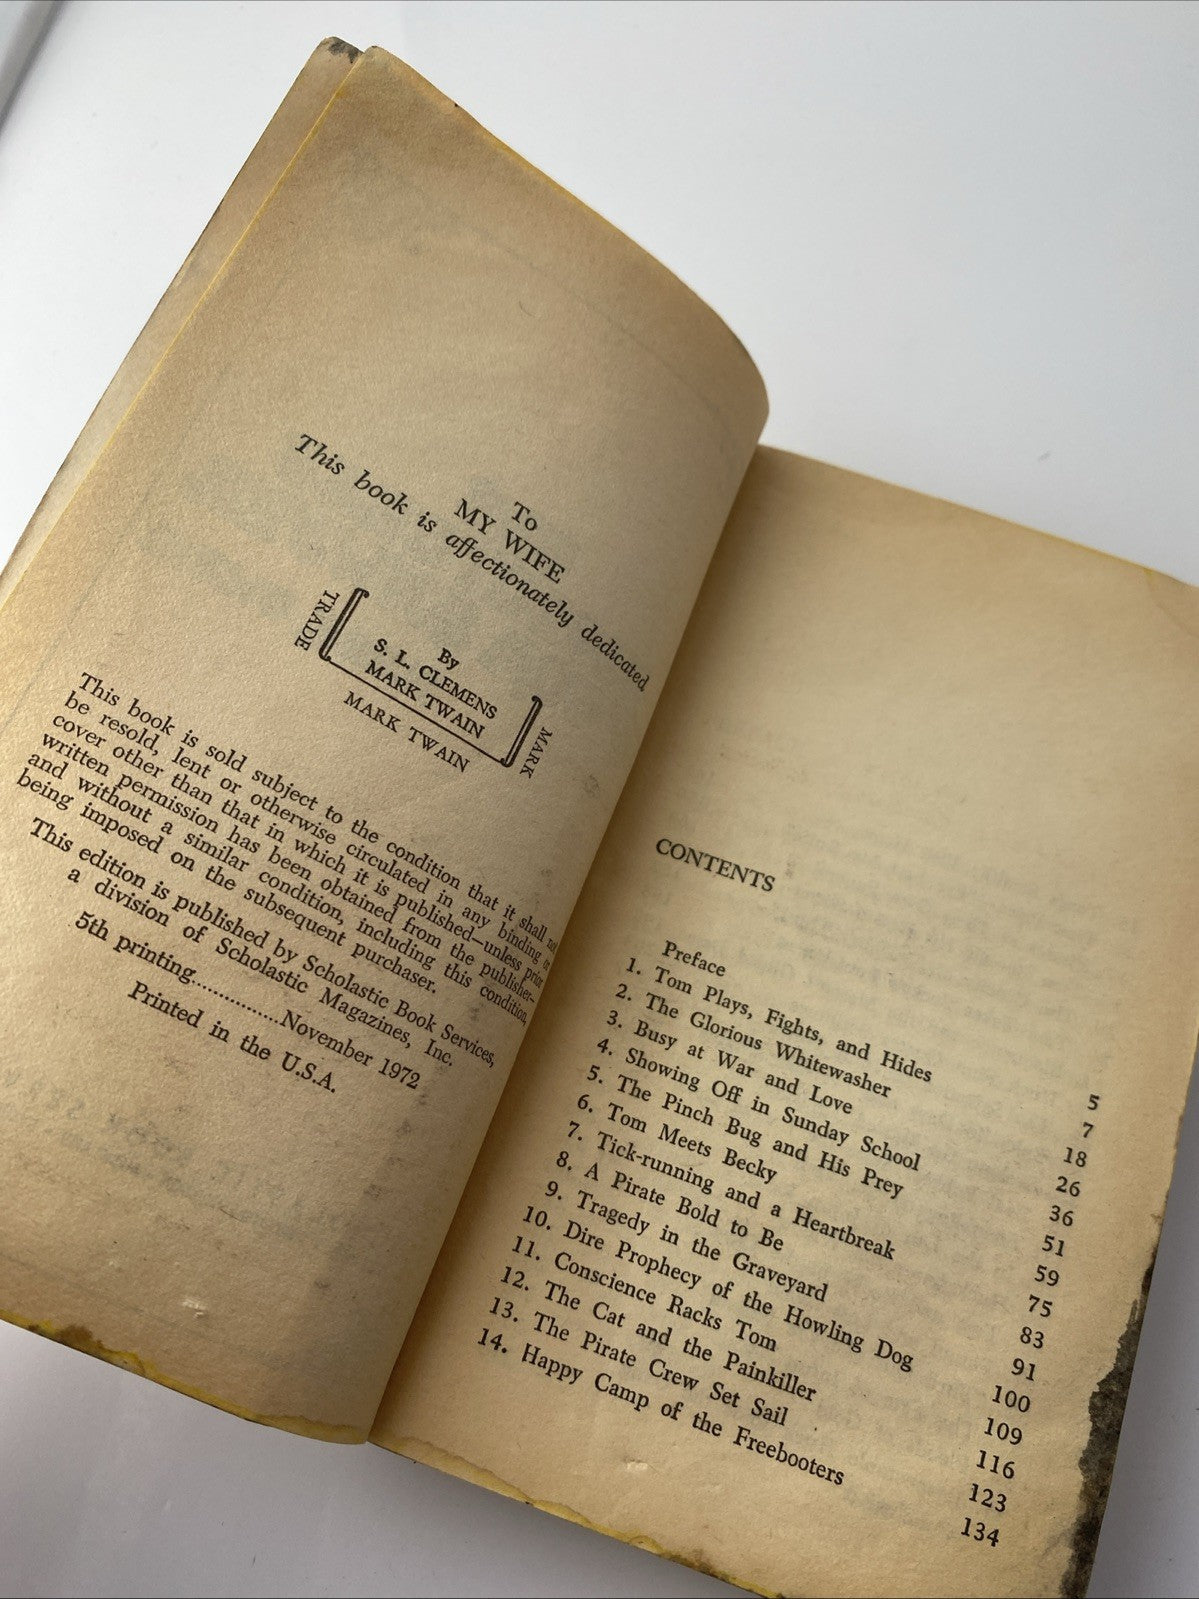 To
MY WIFE
This book is affectionately dedicated
TRADE
By
S. L. CLEMENS
MARK TWAIN
MARK
MARK TWAIN
This book is sold subject to the condition that it shall not
be resold, lent or otherwise circulated in any binding or
cover other than that in which it is published—unless prior
written permission has been obtained from the publisher—
and without a similar condition, including this condition,
being imposed on the subsequent purchaser.
This edition is published by Scholastic Book Services,
a division of Scholastic Magazines, Inc.
5th printing..............November 1972
Printed in the U.S.A.
CONTENTS
Preface 5
1. Tom Plays, Fights, and Hides 7
2. The Glorious Whitewasher 18
3. Busy at War and Love 26
4. Showing Off in Sunday School 36
5. The Pinch Bug and His Prey 51
6. Tom Meets Becky 59
7. Tick-running and a Heartbreak 75
8. A Pirate Bold to Be 83
9. Tragedy in the Graveyard 91
10. Dire Prophecy of the Howling Dog 100
11. Conscience Racks Tom 109
12. The Cat and the Painkiller 116
13. The Pirate Crew Set Sail 123
14. Happy Camp of the Freebooters 134